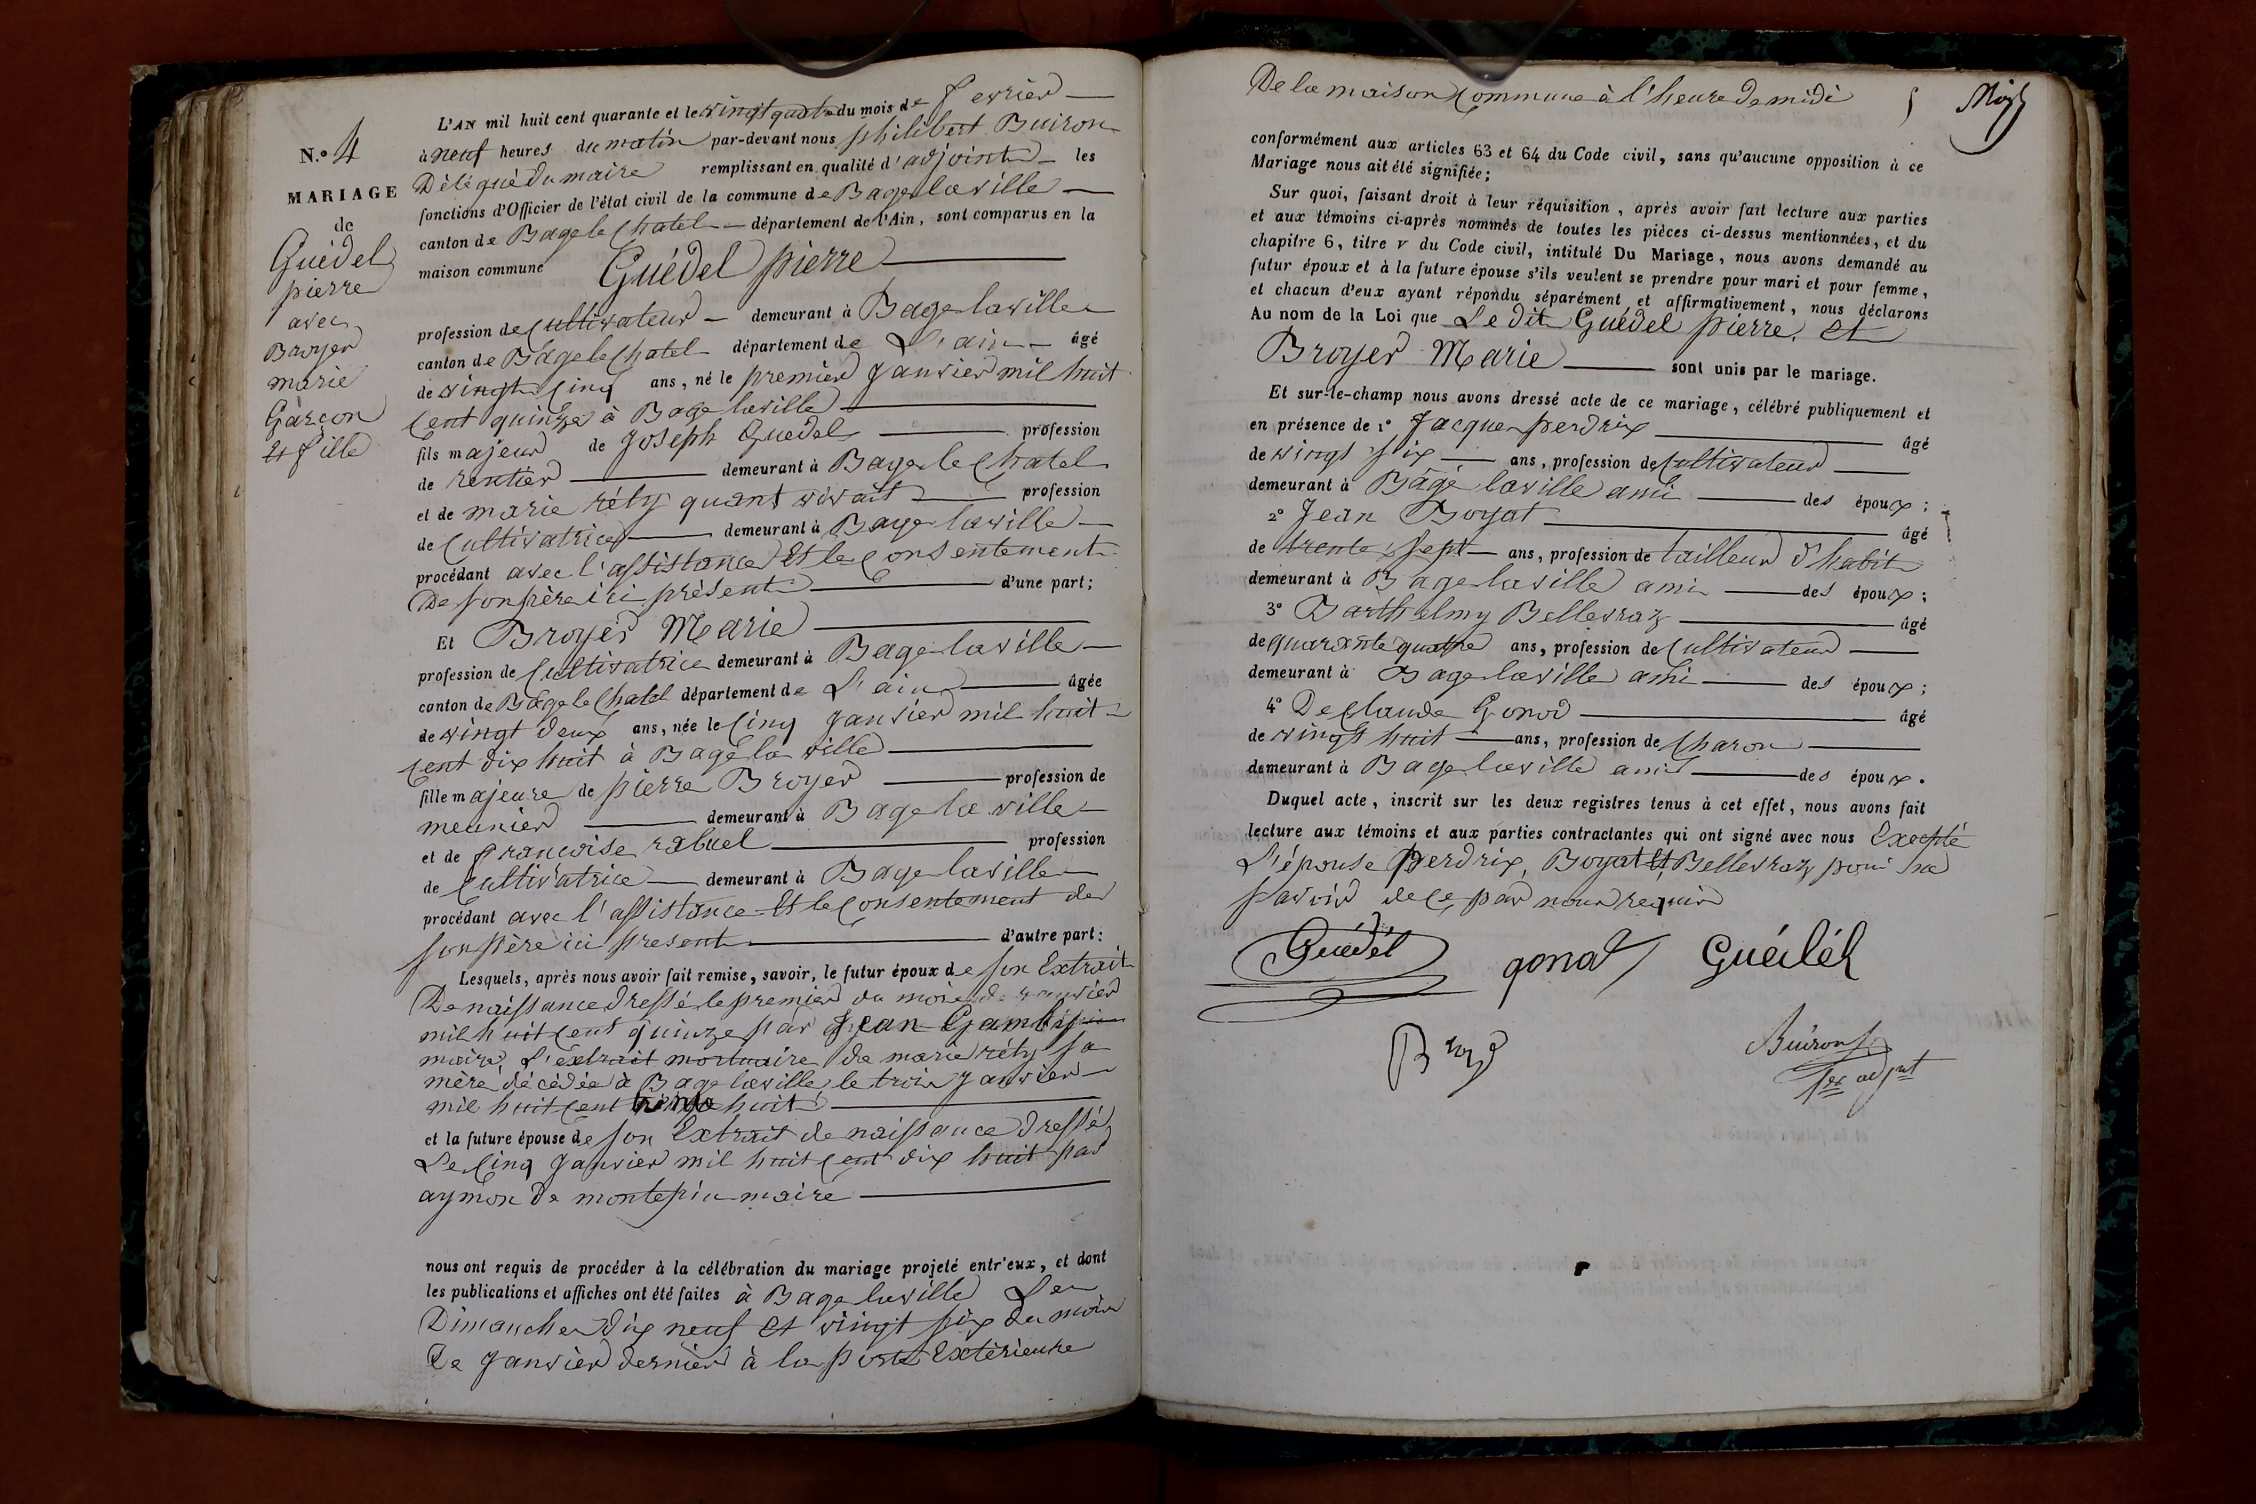 N.o 4
MARIAGE
de
Guédel
pierre
avec
Broyer
marie
Garçon
et fille
L'AN mil huit cent quarante et le vingt quatre du mois de fevrier
à neuf heures du matin par-devant nous philibert Buiron
Délégué du maire remplissant en qualité d'adjoint les
fonctions d'Officier de l'état civil de la commune de Bage la ville
canton de Bage le Chatel département de l'Ain, sont comparus en la
maison commune Guédel pierre
profession de Cultivateur demeurant à Bage la ville
canton de Bage le Chatel département de L'ain âgé
de vingt Cinq ans, né le premier Janvier mil huit
Cent quinze à Bage la ville
fils majeur de Joseph Guedel profession
de rentier demeurant à Bage le Chatel
et de marie réty quant vivait profession
de Cultivatrice demeurant à Bage la ville
procédant avec l'assistance Et le Consentement
De son père ici présent d'une part;
Et Broyer Marie
profession de Cultivatrice demeurant à Bage la ville
canton de Bage le Chatel département de L'ain âgée
de vingt deux ans, née le Cinq Janvier mil huit
Cent dix huit à Bagé la ville
fille majeure de pierre Broyer profession de
meunier demeurant à Bage la ville
et de françoise rabuel profession
de Cultivatrice demeurant à Bage la ville
procédant avec l'assistance Et le Consentement de
son père ici present d'autre part:
Lesquels, après nous avoir fait remise, savoir, le futur époux de son Extrait
De naissance dressé le premier du mois de janvier
mil huit Cent quinze par Jean
maire, L'extrait mortuaire de marie réty sa
mère, décédée à Bage la ville le trois Janvier
mil huit Cent trente huit
et la future épouse de son Extrait de naissance dressé
Le Cinq Janvier mil huit Cent dix huit par
aymon de montepin maire
nous ont requis de procéder à la célébration du mariage projeté entr'eux, et dont
les publications et affiches ont été faites à Bage la ville Les
Dimanches dix neuf et vingt six du mois
De Janvier dernier à la porte Extérieure
De la maison Commune à l'heure de midi
conformément aux articles 63 et 64 du Code civil, sans qu'aucune opposition à ce
Mariage nous ait été signifiée;
Sur quoi, faisant droit à leur réquisition, après avoir fait lecture aux parties
et aux témoins ci-après nommés de toutes les pièces ci-dessus mentionnées, et du
chapitre 6, titre v du Code civil, intitulé Du Mariage, nous avons demandé au
futur époux et à la future épouse s'ils veulent se prendre pour mari et pour femme,
et chacun d'eux ayant répondu séparément et affirmativement, nous déclarons
Au nom de la Loi que Le dit Guédel pierre. Et
Broyer Marie sont unis par le mariage.
Et sur-le-champ nous avons dressé acte de ce mariage, célébré publiquement et
en présence de 1o Jacques perdrix âgé
de vingt six ans, profession de Cultivateur
demeurant à Bagé la ville ami des époux;
2o Jean Boyat âgé
de trente sept ans, profession de tailleur d'habit
demeurant à Bage la ville ami des époux;
3o Barthelmy Bellevraz âgé
de quarante quatre ans, profession de Cultivateur
demeurant à Bage la ville ami des époux;
4o De Claude Gonod âgé
de vingt huit ans, profession de Charon
demeurant à Bage la ville amis des époux.
Duquel acte, inscrit sur les deux registres tenus à cet effet, nous avons fait
lecture aux témoins et aux parties contractantes qui ont signé avec nous Excepté
L'épouse Perdrix, Boyat Et Bellevraz pour ne
savoir de ce par nous requis
Guédél gonod Guédél
Buiron
1er adjnt